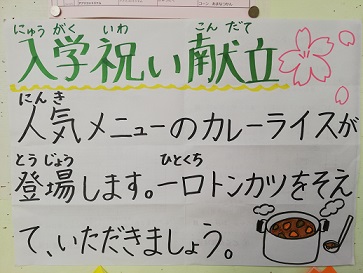 にゅうがく いわ こんだて
入学祝い献立
にんき
人気メニューのカレーライスが
とうじょう ひとくち
登場します。一口トンカツをそえ
て、いただきましょう。